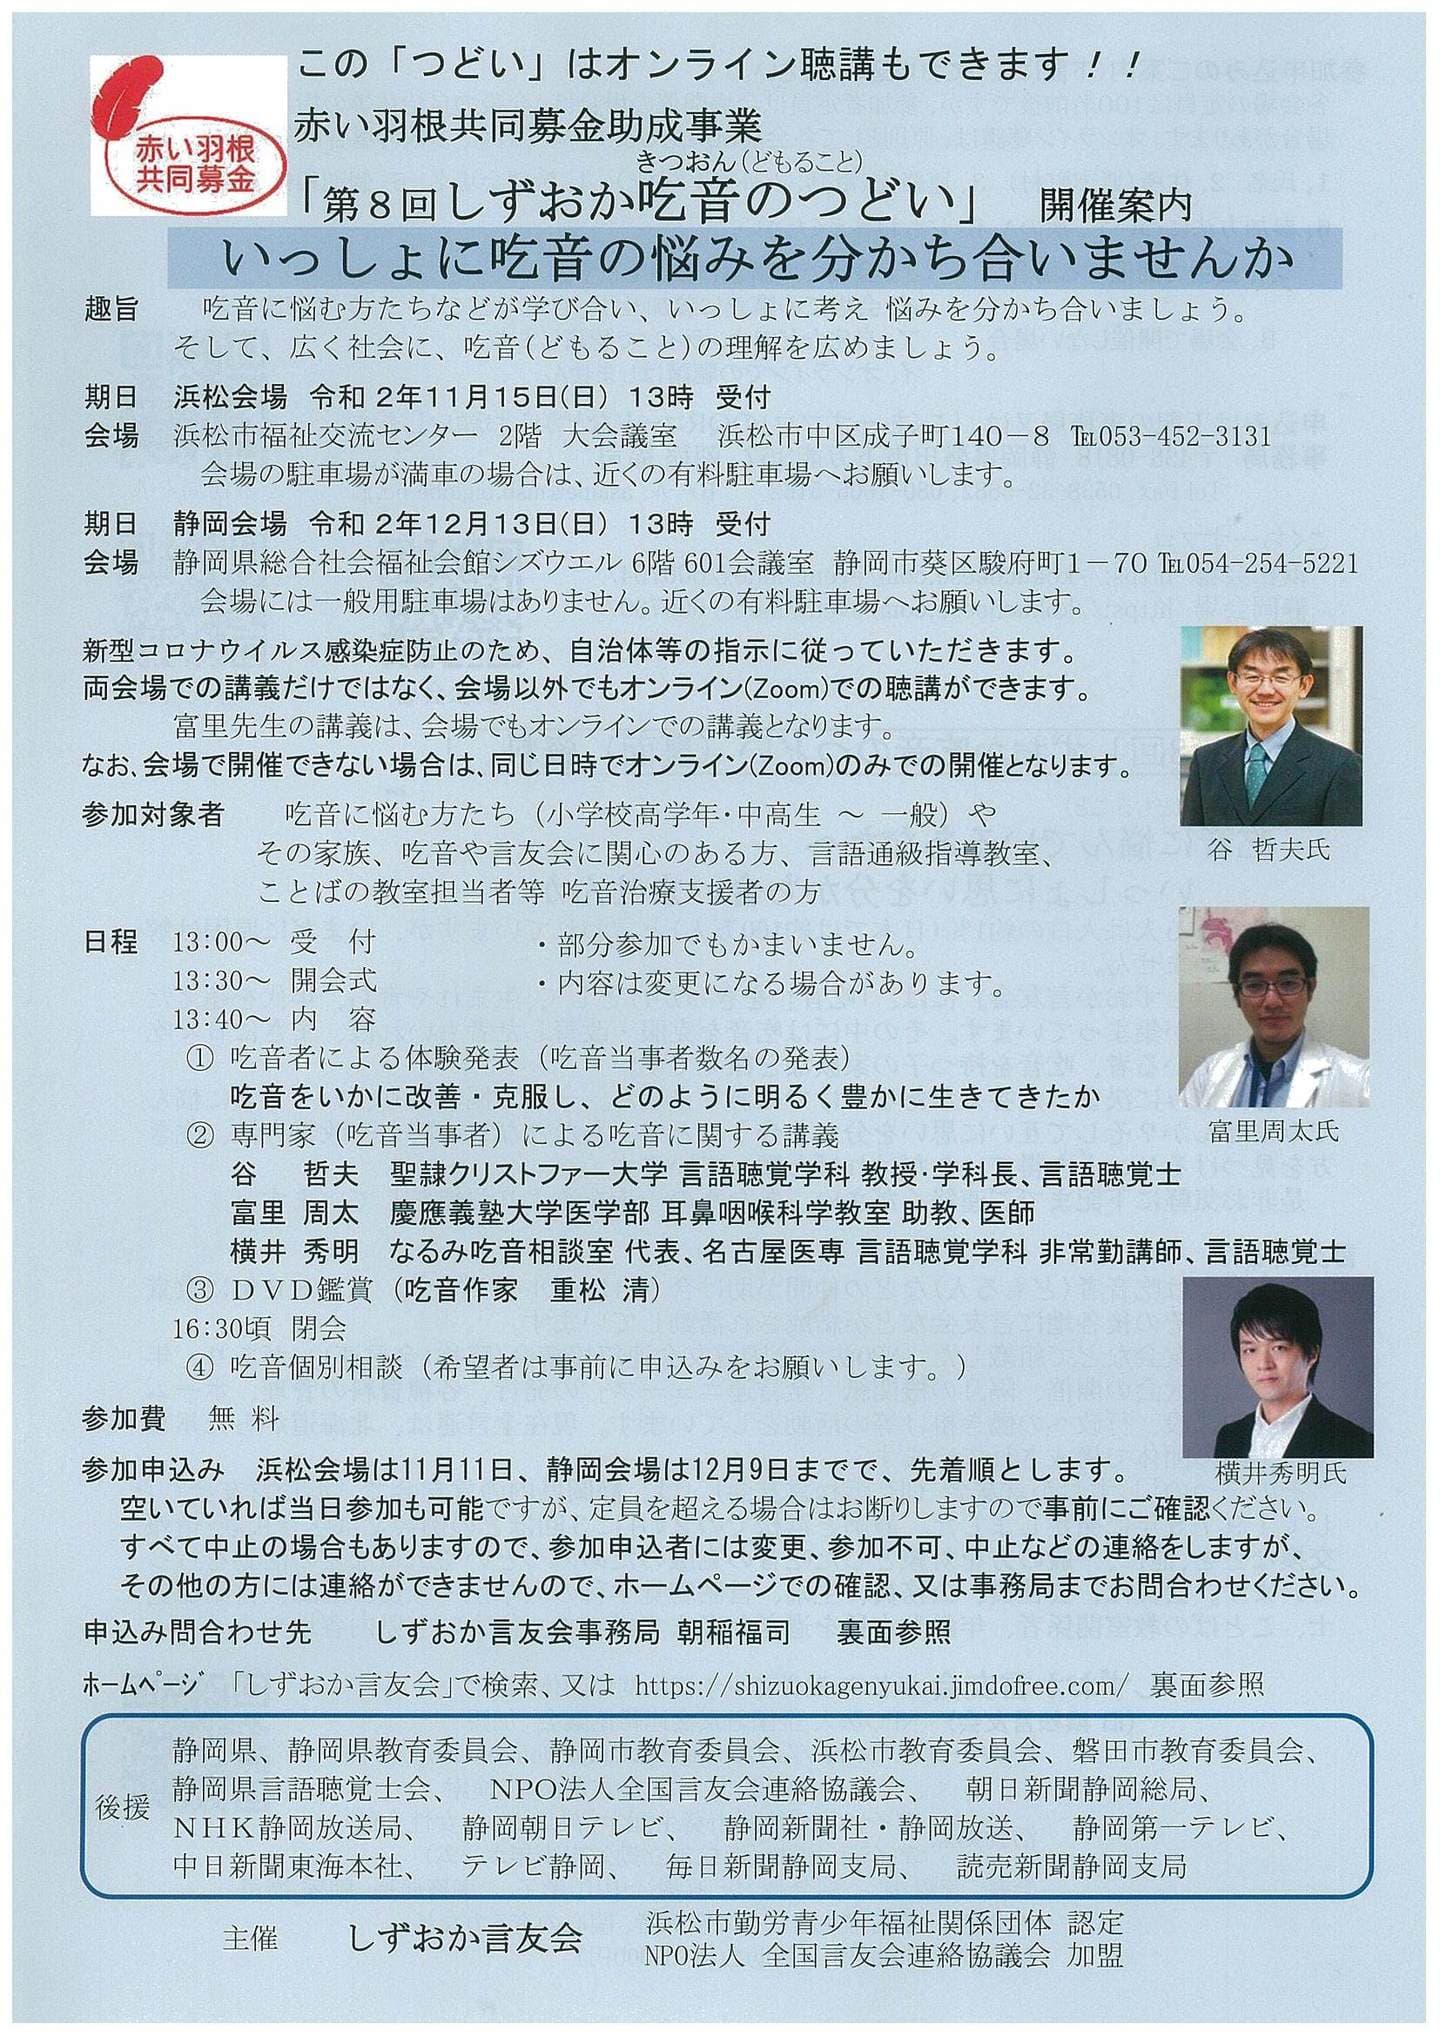 この「つどい」はオンライン聴講もできます！！
赤い羽根
共同募金
赤い羽根共同募金助成事業
きつおん(どもること)
「第８回しずおか吃音のつどい」　開催案内
いっしょに吃音の悩みを分かち合いませんか
趣旨　吃音に悩む方たちなどが学び合い、いっしょに考え 悩みを分かち合いましょう。
そして、広く社会に、吃音(どもること)の理解を広めましょう。
期日　浜松会場　令和 2年11月15日(日)　13時　受付
会場　浜松市福祉交流センター　2階　大会議室　浜松市中区成子町140－8　℡053-452-3131
会場の駐車場が満車の場合は、近くの有料駐車場へお願いします。
期日　静岡会場　令和 2年12月13日(日)　13時　受付
会場　静岡県総合社会福祉会館シズウエル 6階 601会議室　静岡市葵区駿府町1－70 ℡054-254-5221
会場には一般用駐車場はありません。近くの有料駐車場へお願いします。
新型コロナウイルス感染症防止のため、自治体等の指示に従っていただきます。
両会場での講義だけではなく、会場以外でもオンライン(Zoom)での聴講ができます。
富里先生の講義は、会場でもオンラインでの講義となります。
なお、会場で開催できない場合は、同じ日時でオンライン(Zoom)のみでの開催となります。
谷　哲夫氏
参加対象者　吃音に悩む方たち（小学校高学年・中高生 ～ 一般）や
その家族、吃音や言友会に関心のある方、言語通級指導教室、
ことばの教室担当者等 吃音治療支援者の方
日程　13：00～　受　付　・部分参加でもかまいません。
13：30～　開会式　・内容は変更になる場合があります。
13：40～　内　容
① 吃音者による体験発表（吃音当事者数名の発表）
吃音をいかに改善・克服し、どのように明るく豊かに生きてきたか
富里周太氏
② 専門家（吃音当事者）による吃音に関する講義
谷　哲夫　聖隷クリストファー大学 言語聴覚学科 教授・学科長、言語聴覚士
富里　周太　慶應義塾大学医学部 耳鼻咽喉科学教室 助教、医師
横井　秀明　なるみ吃音相談室 代表、名古屋医専 言語聴覚学科 非常勤講師、言語聴覚士
③ ＤＶＤ鑑賞（吃音作家　重松 清）
16：30頃　閉会
④ 吃音個別相談（希望者は事前に申込みをお願いします。）
参加費　無 料
横井秀明氏
参加申込み　浜松会場は11月11日、静岡会場は12月9日までで、先着順とします。
空いていれば当日参加も可能ですが、定員を超える場合はお断りしますので事前にご確認ください。
すべて中止の場合もありますので、参加申込者には変更、参加不可、中止などの連絡をしますが、
その他の方には連絡ができませんので、ホームページでの確認、又は事務局までお問合わせください。
申込み問合わせ先　しずおか言友会事務局　朝稲福司　裏面参照
ﾎｰﾑﾍﾟｰｼﾞ　「しずおか言友会」で検索、又は　https://shizuokagenyukai.jimdofree.com/　裏面参照
後援
静岡県、静岡県教育委員会、静岡市教育委員会、浜松市教育委員会、磐田市教育委員会、
静岡県言語聴覚士会、　NPO法人全国言友会連絡協議会、　朝日新聞静岡総局、
ＮＨＫ静岡放送局、　静岡朝日テレビ、　静岡新聞社・静岡放送、　静岡第一テレビ、
中日新聞東海本社、　テレビ静岡、　毎日新聞静岡支局、　読売新聞静岡支局
主催　しずおか言友会　浜松市勤労青少年福祉関係団体　認定
NPO法人　全国言友会連絡協議会　加盟